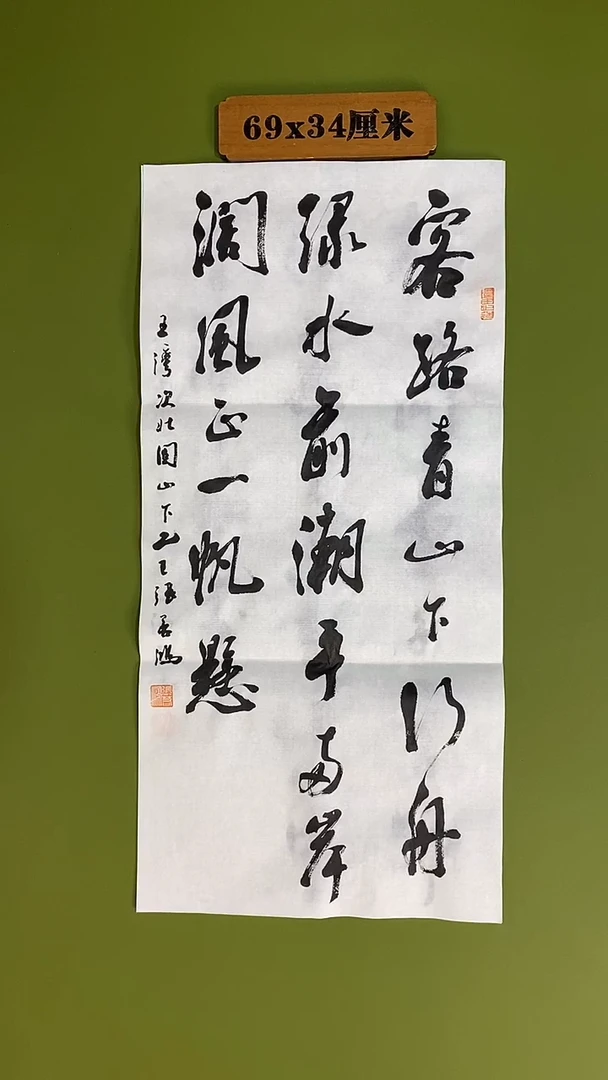 69x34厘米
客路青山下行舟
绿水前潮平两岸
阔风正一帆悬
王湾次北固山下